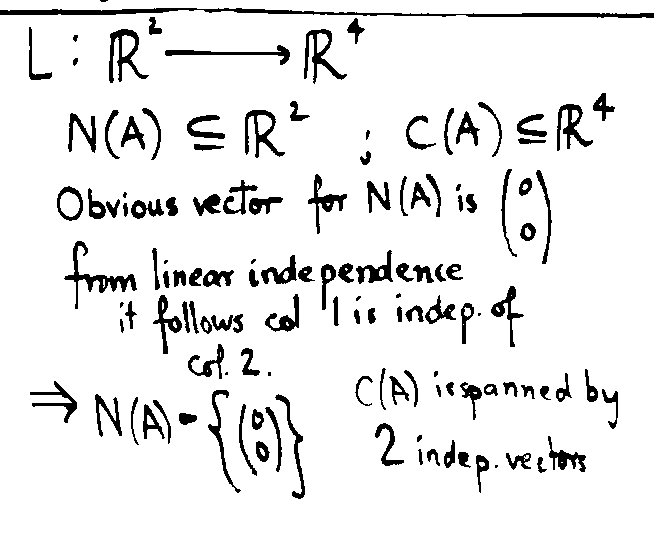 L : ℝ² ⟶ ℝ⁴
N(A) ⊆ ℝ² ; C(A) ⊆ ℝ⁴
Obvious vector for N(A) is (0 0)
from linear independence
it follows col 1 is indep. of
col. 2.
⇒ N(A) = {(0 0)}
C(A) is spanned by
2 indep. vectors